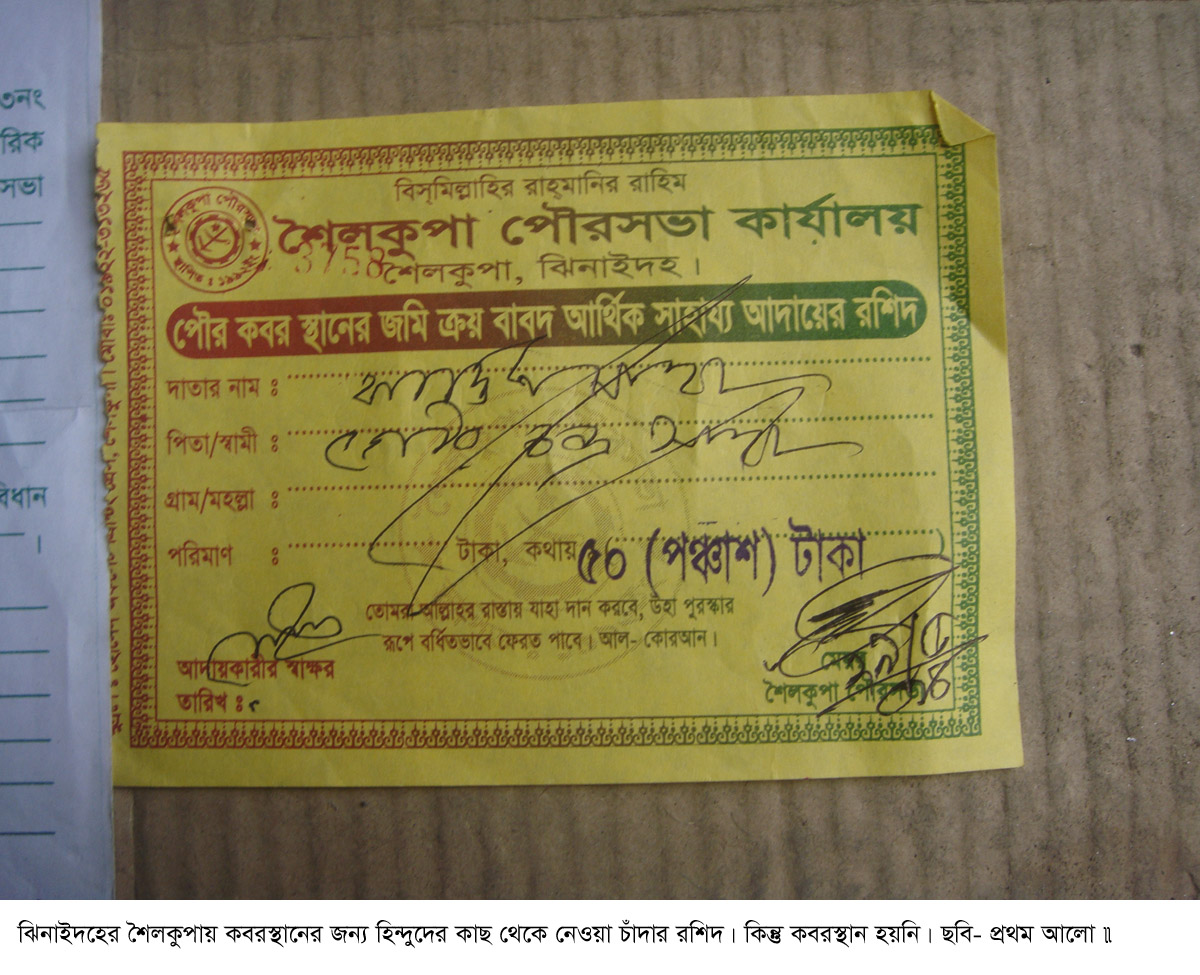 ৩নং
রিক
সভা
বিধান
বিস্‌মিল্লাহির রাহ্‌মানির রাহিম
শৈলকুপা পৌরসভা কার্যালয়
3758
শৈলকুপা, ঝিনাইদহ।
পৌর কবর স্থানের জমি ক্রয় বাবদ আর্থিক সাহায্য আদায়ের রশিদ
দাতার নাম :
পিতা/স্বামী : চন্দ্র
গ্রাম/মহল্লা :
পরিমাণ : টাকা, কথায় ৫০ (পঞ্চাশ) টাকা
তোমরা আল্লাহর রাস্তায় যাহা দান করবে, উহা পুরস্কার
রূপে বর্ধিতভাবে ফেরত পাবে। আল- কোরআন।
আদায়কারীর স্বাক্ষর
তারিখ :
মেয়র
শৈলকুপা পৌরসভা
ঝিনাইদহের শৈলকুপায় কবরস্থানের জন্য হিন্দুদের কাছ থেকে নেওয়া চাঁদার রশিদ। কিন্তু কবরস্থান হয়নি। ছবি- প্রথম আলো ॥